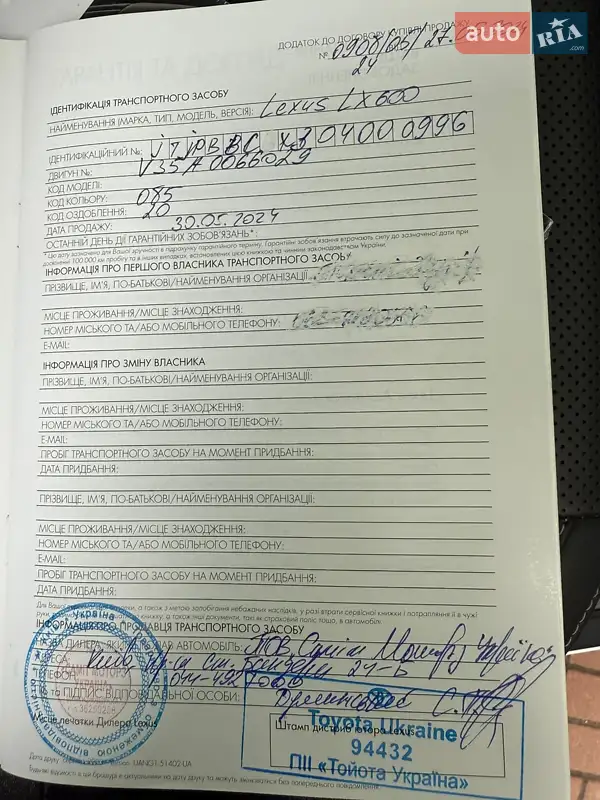 auto RIA .com
ДОДАТОК ДО ДОГОВОРУ КУПІВЛІ-ПРОДАЖУ
№ 0908/05/27.
24
ІДЕНТИФІКАЦІЯ ТРАНСПОРТНОГО ЗАСОБУ
НАЙМЕНУВАННЯ (МАРКА, ТИП, МОДЕЛЬ, ВЕРСІЯ): Lexus LX600
ІДЕНТИФІКАЦІЙНИЙ №: JTJPBBCX304000996
ДВИГУН №: V35A0066029
КОД МОДЕЛІ:
КОД КОЛЬОРУ: 085
КОД ОЗДОБЛЕННЯ: 20
ДАТА ПРОДАЖУ: 30.05.2024
ОСТАННІЙ ДЕНЬ ДІЇ ГАРАНТІЙНИХ ЗОБОВ'ЯЗАНЬ*:
*Цю дату зазначено для Вашої зручності в підрахунку гарантійного терміну. Гарантійні зобов'язання втрачають силу до зазначеної дати при
досягненні 100.000 км пробігу та в інших випадках, встановлених цією книжкою та чинним законодавством України.
ІНФОРМАЦІЯ ПРО ПЕРШОГО ВЛАСНИКА ТРАНСПОРТНОГО ЗАСОБУ
ПРІЗВИЩЕ, ІМ'Я, ПО-БАТЬКОВІ/НАЙМЕНУВАННЯ ОРГАНІЗАЦІЇ:
МІСЦЕ ПРОЖИВАННЯ/МІСЦЕ ЗНАХОДЖЕННЯ:
НОМЕР МІСЬКОГО ТА/АБО МОБІЛЬНОГО ТЕЛЕФОНУ:
E-MAIL:
ІНФОРМАЦІЯ ПРО ЗМІНУ ВЛАСНИКА
ПРІЗВИЩЕ, ІМ'Я, ПО-БАТЬКОВІ/НАЙМЕНУВАННЯ ОРГАНІЗАЦІЇ:
МІСЦЕ ПРОЖИВАННЯ/МІСЦЕ ЗНАХОДЖЕННЯ:
НОМЕР МІСЬКОГО ТА/АБО МОБІЛЬНОГО ТЕЛЕФОНУ:
E-MAIL:
ПРОБІГ ТРАНСПОРТНОГО ЗАСОБУ НА МОМЕНТ ПРИДБАННЯ:
ДАТА ПРИДБАННЯ:
ПРІЗВИЩЕ, ІМ'Я, ПО-БАТЬКОВІ/НАЙМЕНУВАННЯ ОРГАНІЗАЦІЇ:
МІСЦЕ ПРОЖИВАННЯ/МІСЦЕ ЗНАХОДЖЕННЯ:
НОМЕР МІСЬКОГО ТА/АБО МОБІЛЬНОГО ТЕЛЕФОНУ:
E-MAIL:
ПРОБІГ ТРАНСПОРТНОГО ЗАСОБУ НА МОМЕНТ ПРИДБАННЯ:
ДАТА ПРИДБАННЯ:
Для Вашої а також з метою запобігання небажаних наслідків, у разі втрати сервісної книжки і потрапляння її в чужі
руки, а також, як страховий поліс тощо, в автомобілі.
ІНФОРМАЦІЯ ПРО ПРОДАВЦЯ ТРАНСПОРТНОГО ЗАСОБУ
НАЗВА ДИЛЕРА, ЯКИЙ АВТОМОБІЛЬ: ТОВ
Київ 24-Б
ТЕЛЕФОН: 044-
ТА ПІДПИС ВІДПОВІДАЛЬНОЇ ОСОБИ: С.
Україна
Місце печатки Дилера Lexus
Штамп дистриб'ютора Lexus
Toyota Ukraine
94432
ПІІ «Тойота Україна»
Дата друку UANG1-51402-UA
Будь-які відомості в цій брошурі є актуальними на дату друку та можуть змінюватися без попереднього повідомлення.